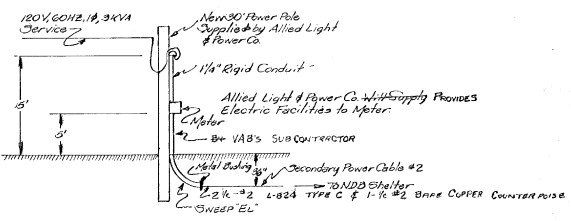 120V, 60HZ, 1ϕ, 3KVA
Service
New 30' Power Pole
Supplied by Allied Light
& Power Co.
1¼" Rigid Conduit
Allied Light & Power Co. Will Supply PROVIDES
Electric Facilities to Meter.
Meter
15'
5'
BY VAB'S SUBCONTRACTOR
Metal Bushing
36"
Secondary Power Cable #2
To NDB Shelter
2 ¹⁄c - #2 L-824 TYPE C & 1-¹⁄c #2 BARE COPPER COUNTERPOISE
SWEEP "EL"